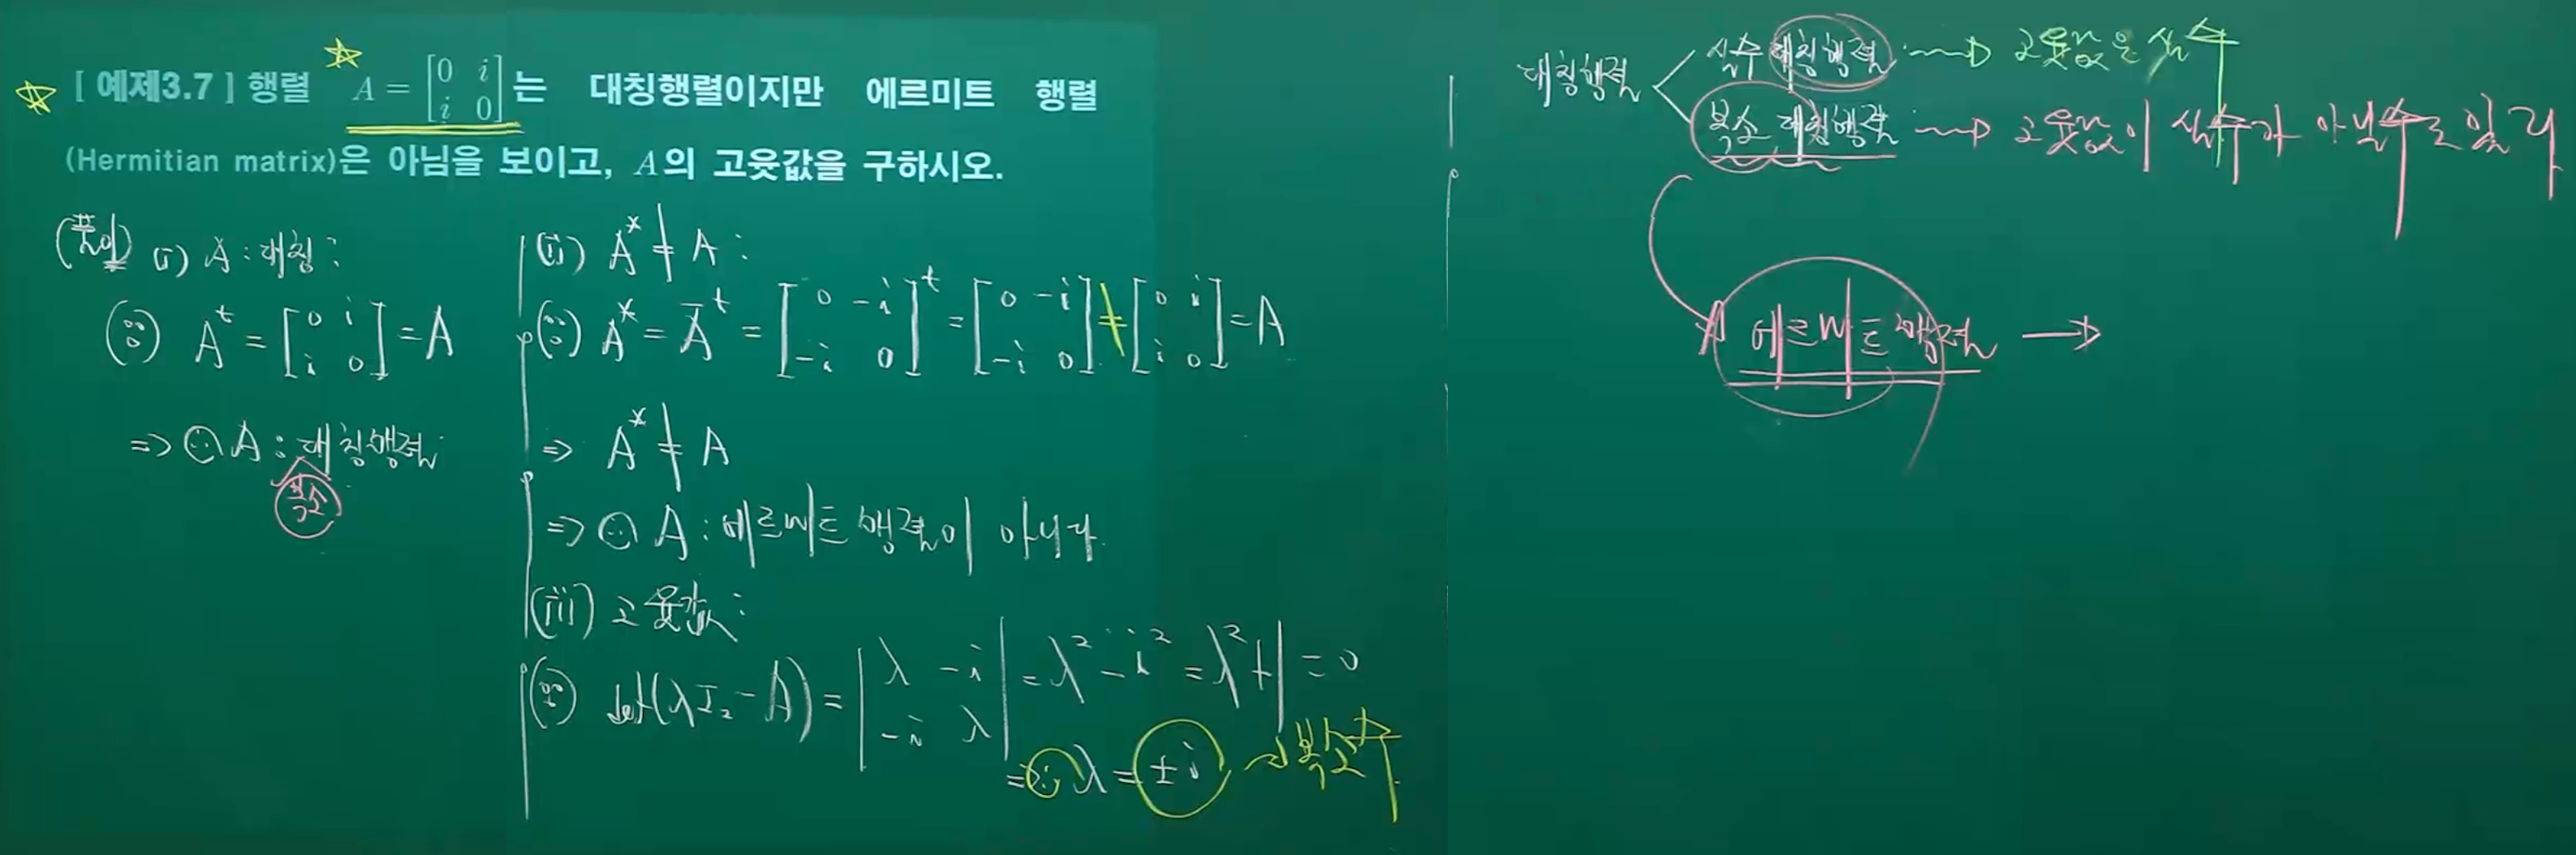 [ 예제3.7 ] 행렬 A = [0 i; i 0] 는 대칭행렬이지만 에르미트 행렬
(Hermitian matrix)은 아님을 보이고, A의 고윳값을 구하시오.
(풀이) (i) A : 대칭 :
(∵) Aᵗ = [0 i; i 0] = A
⇒ ∴ A : 대칭행렬
복소
(ii) A* ≠ A :
(∵) A* = Āᵗ = [0 -i; -i 0]ᵗ = [0 -i; -i 0] ≠ [0 i; i 0] = A
⇒ A* ≠ A
⇒ ∴ A : 에르미트 행렬이 아니다.
(iii) 고윳값 :
(∵) det(λI₂ - A) = |λ -i; -i λ| = λ² - i² = λ² + 1 = 0
⇒ ∴ λ = ±i → 복소수
대칭행렬
실수 대칭행렬 → 고윳값은 실수
복소 대칭행렬 → 고윳값이 실수가 아닐 수도 있다
에르미트 행렬 →